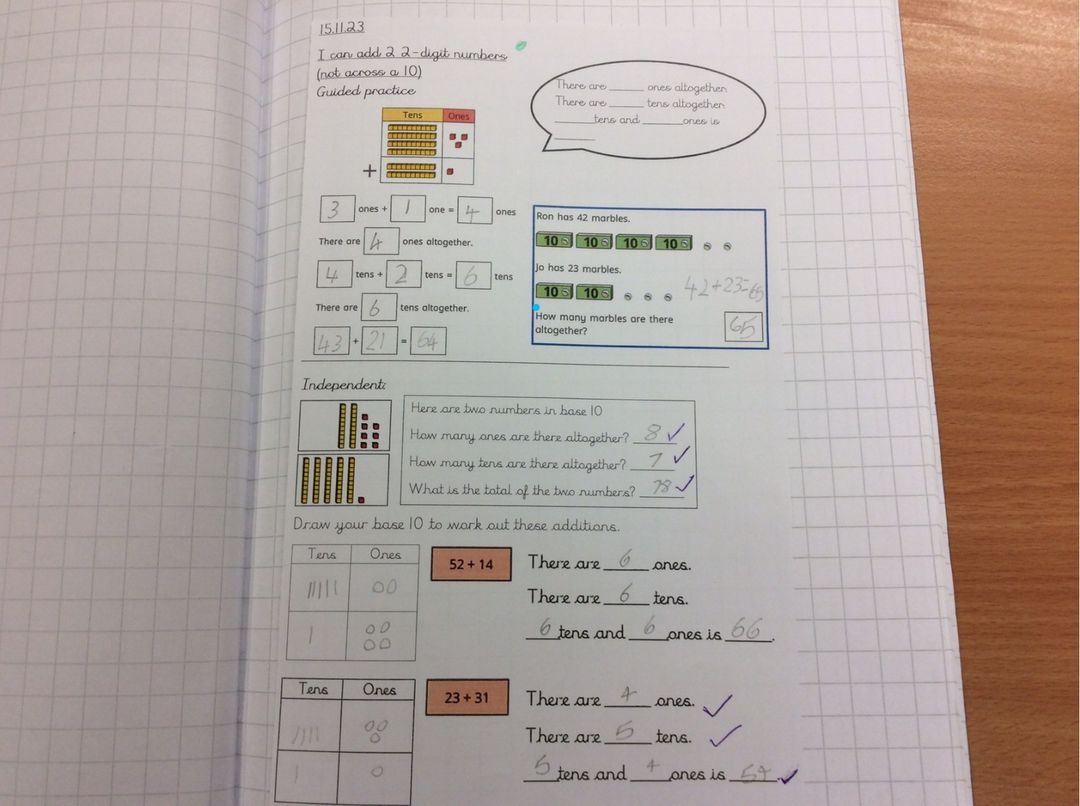 15.11.23
I can add 2 2-digit numbers
(not across a 10)
Guided practice
There are ______ ones altogether.
There are ______ tens altogether.
______ tens and ______ ones is
______
Tens Ones
+
3 ones + 1 one = 4 ones
There are 4 ones altogether.
4 tens + 2 tens = 6 tens
There are 6 tens altogether.
43 + 21 = 64
Ron has 42 marbles.
10 10 10 10
Jo has 23 marbles.
10 10 42+23=65
How many marbles are there
altogether?
65
Independent:
Here are two numbers in base 10
How many ones are there altogether? 8 ✓
How many tens are there altogether? 7 ✓
What is the total of the two numbers? 78 ✓
Draw your base 10 to work out these additions.
Tens Ones
52 + 14
There are 6 ones.
There are 6 tens.
6 tens and 6 ones is 66.
Tens Ones
23 + 31
There are 4 ones. ✓
There are 5 tens. ✓
5 tens and 4 ones is 54 ✓